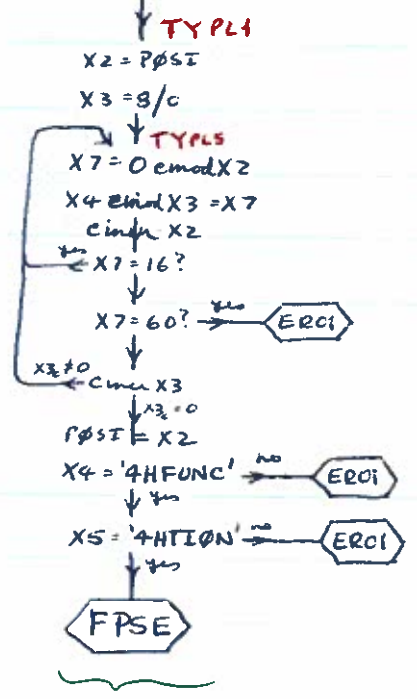 TYPL4
X2 = PØSI
X3 = 8/0
TYPL5
X7 = 0 cmod X2
X4 cmod X3 = X7
X2
yes X7 = 16?
X7 = 60? yes EROi
X3c ≠ 0 X3
X3c = 0
PØSI = X2
X4 = '4HFUNC' no EROi
yes
X5 = '4HTIØN' no EROi
yes
FPSE